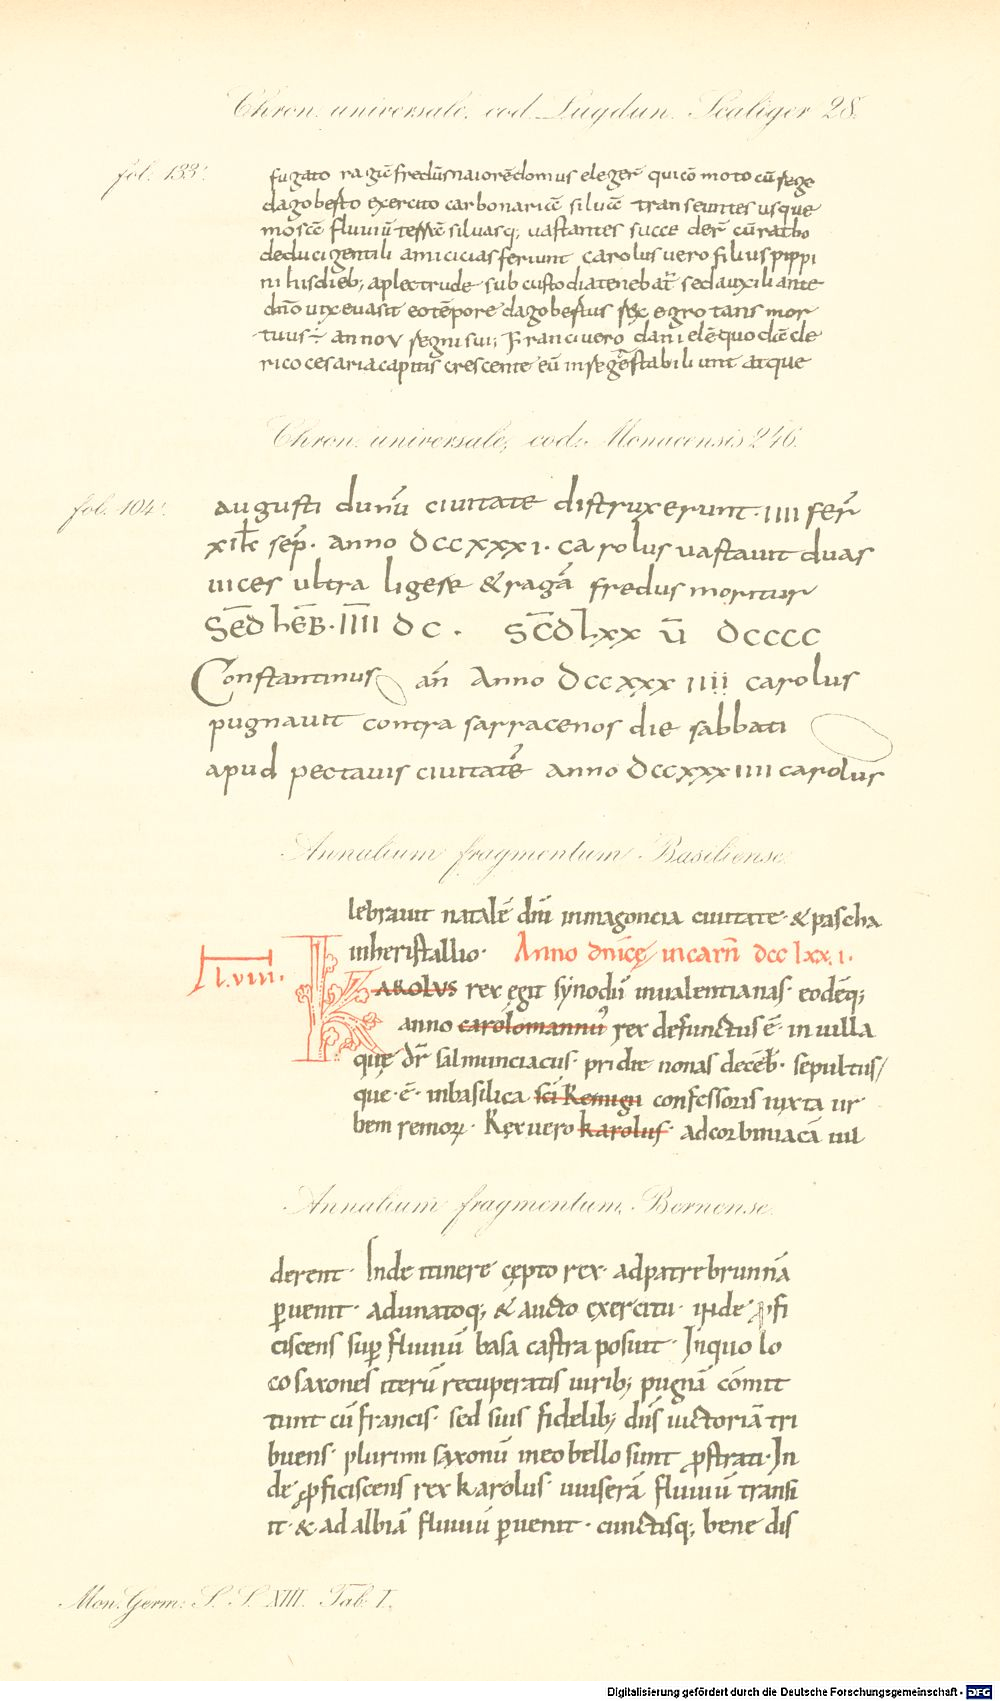 Chron. universale, cod. Lugdun. Scaliger 28.
fol. 133'.
fugato ragēfredūmaiorēdomus elegerū quicō moto cū rege
dagoberto exercito carbonariē siluē transeuntes usque
mosē fluuiū silvasq; vastantes succe derē cū ratbo
deduci gentili amiciciasferiunt carolus vero filiuspippi
ni hisdieb; aplectrude subcustodiatenebat sedauxiliante
dnō vixeuasit eotēpore dagobertus rex egrotans mor
tuus÷ anno v regni sui; Franci vero danielēquodāclē
ricocesariacapitis crescente eū inregnēstabiliunt atque
Chron. universale, cod. Monacensis 246.
fol. 104'.
augusti dunū ciuitatē distruxerunt. IIII fer
xi kł sep. anno DCCXXXI. carolus uastauit duas
uices ultra ligere & ragā fredus moritur
SEĒD hEB. IIII DC . SCDLXX Ū DCCCC
Constantinus añ Anno DCCXXX IIII carolus
pugnauit contra sarracenos die sabbati
apud pectauis ciuitatē anno DCCXXXIIII carolus
Annalium fragmentum Basiliense.
lebrauit natalē dñi inmagoncia ciuitate & pascha
inheristallio. Anno dnicę incarñ dcc lxx.i.
l.viii.
KAROLUS rex ęgit synodū inualentianas. eodēq;
anno carolomannus rex defunctus ē. in uilla
quę dr̄ salmunciacus. pridie nonas decēb. sepultus/
que.ē. inbasilica sci Remigii confessoris iuxta ur
bem remoꝝ. Rex uero karolus. adcorbiniacā uil
Annalium fragmentum Bernense.
derent. Inde itinere cępto rex. adpatrebrunnā
ꝑuenit. adunatoq; & aucto exercitu. inde ꝓfi
ciscens suꝑ fluuiū basa castra posuit. Inquo lo
co saxones iterū recuperatis uirib; pugnā cōmit
tunt cū francis. sed suis fidelib; dñs uictoriā tri
buens. plurimi saxonū ineo bello sunt ꝓstrati. In
de ꝓficiscens rex karolus. uuiserā fluuiū transi
it. & ad albiā fluuiū ꝑuenit. cunctisq; bene dis
Mon. Germ. S. S. XIII. Tab. I.
Digitalisierung gefördert durch die Deutsche Forschungsgemeinschaft - DFG